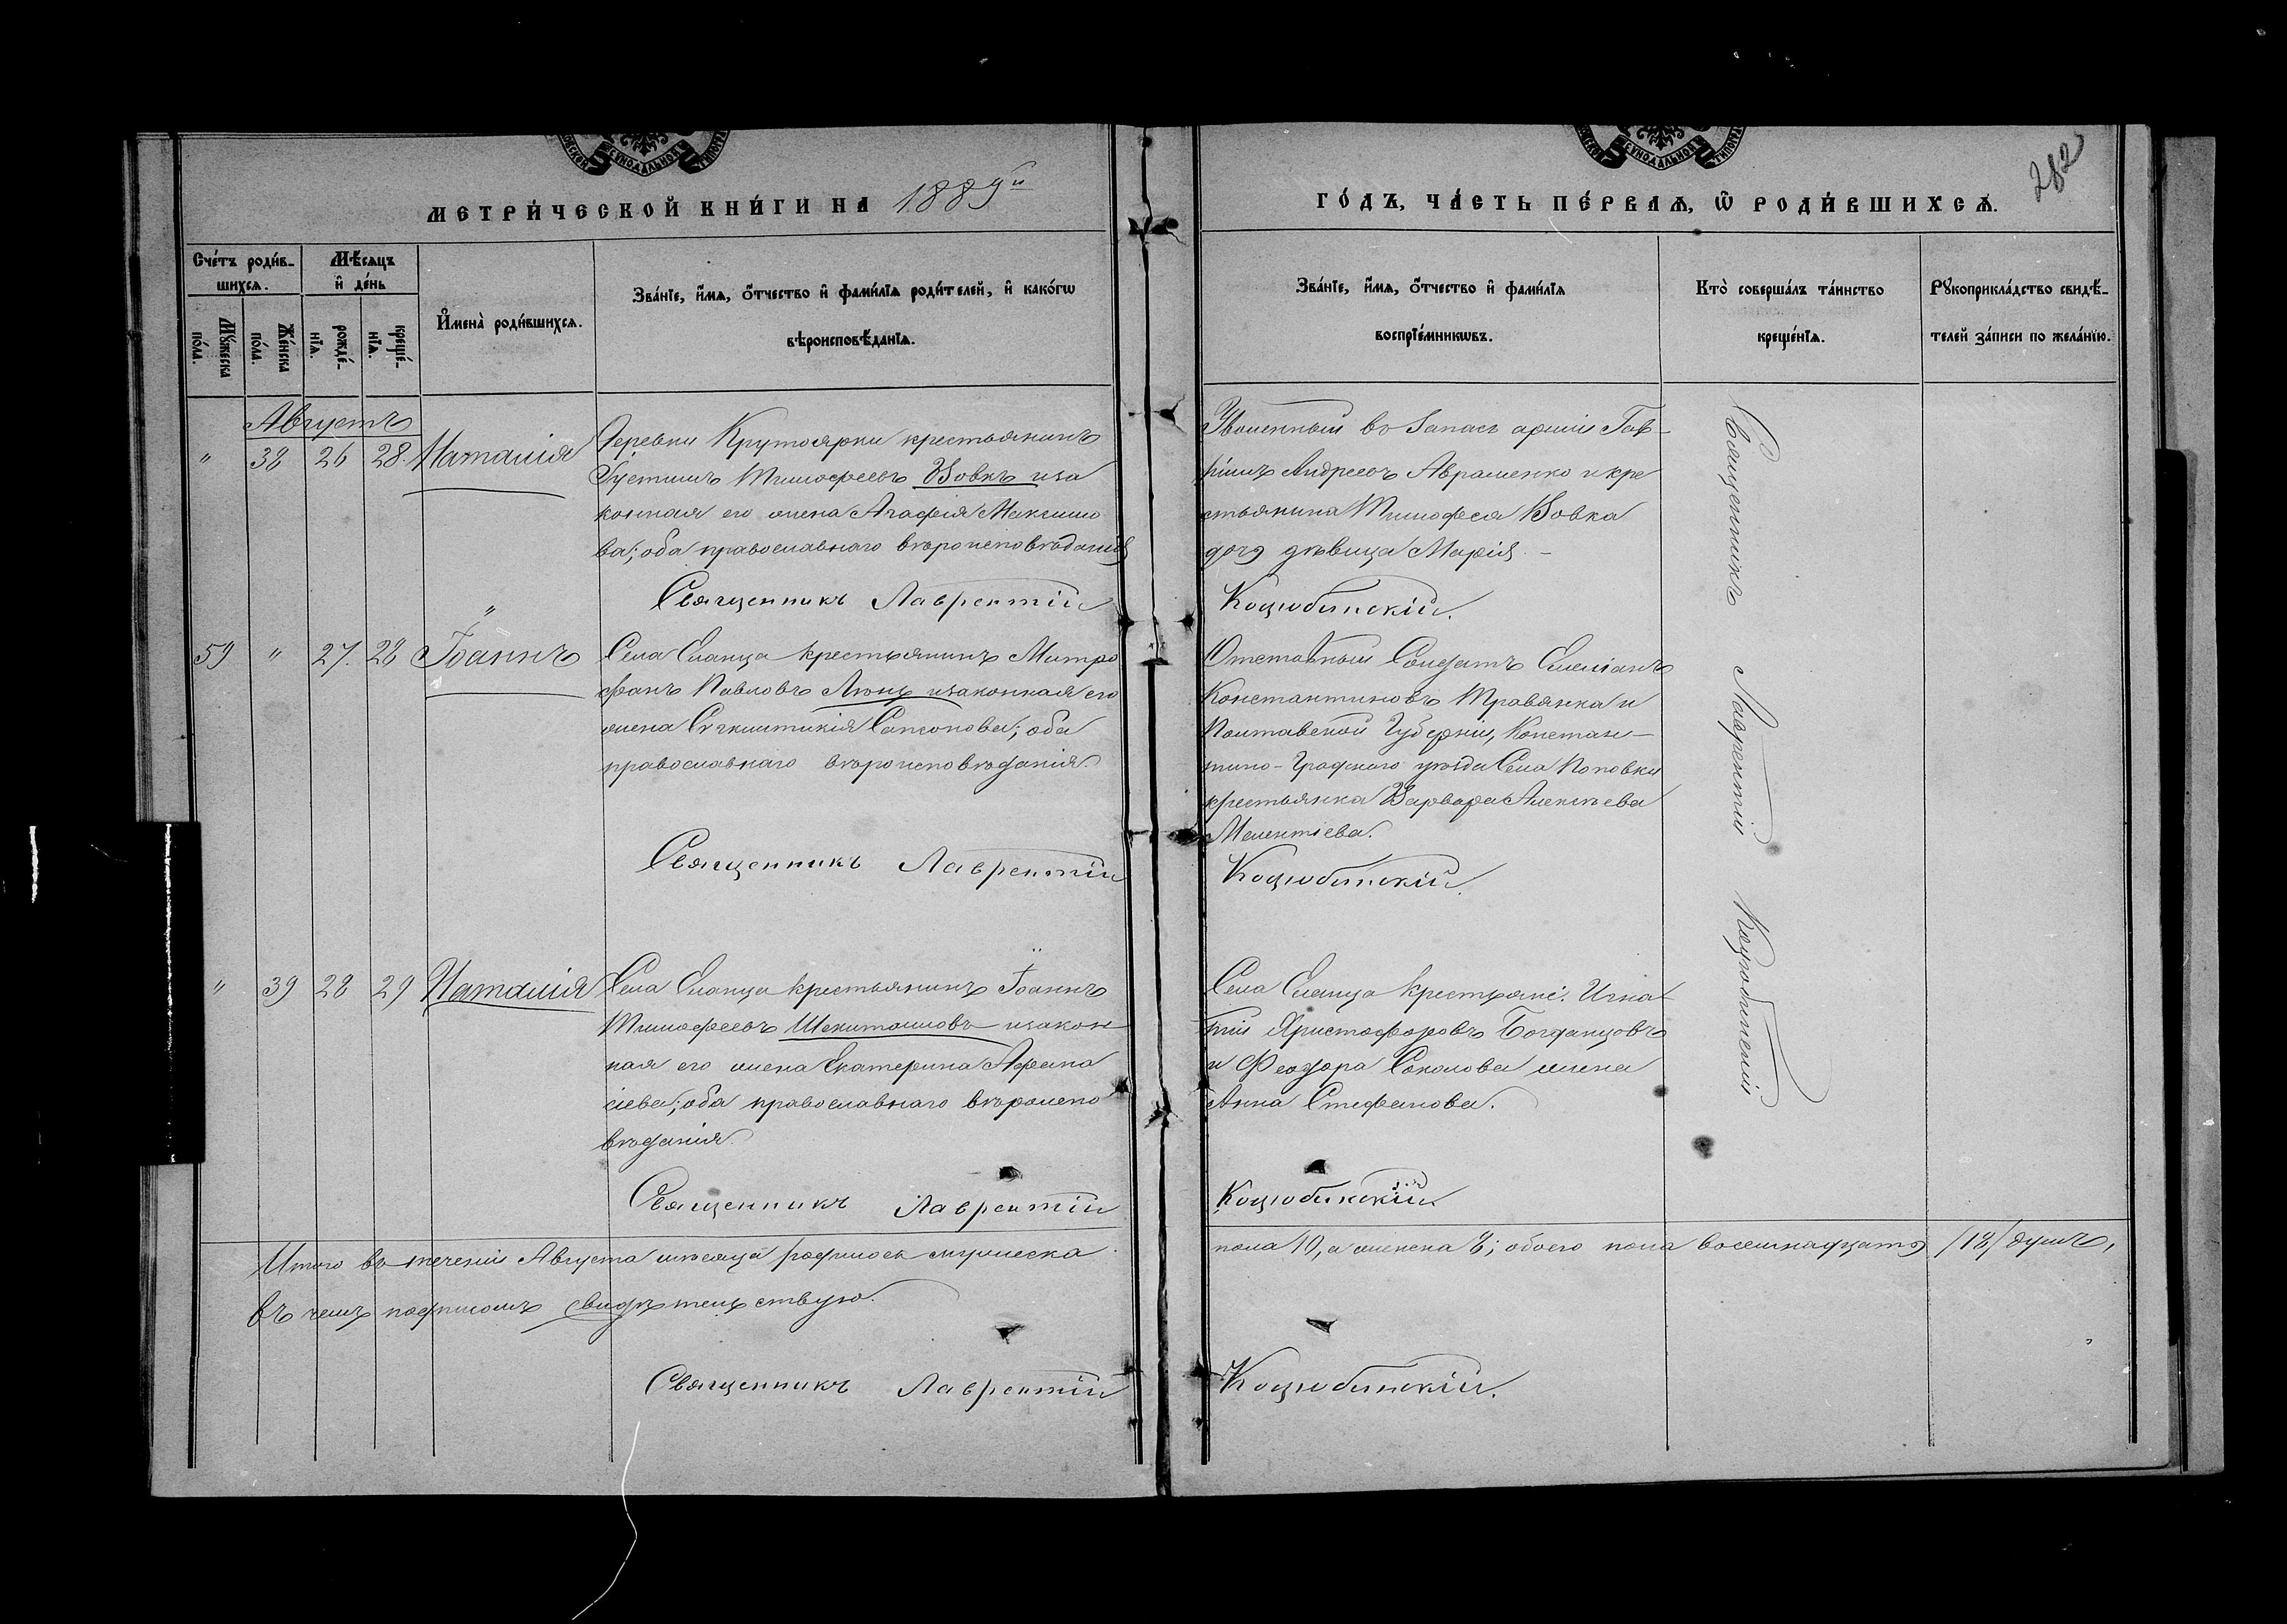 МЕТРИ́ЧЕСКОЙ КНИ́ГИ НА 1889й
ГО́ДЪ, ЧА́СТЬ ПЕ́РВАЯ, Ѿ РОДИ́ВШИХСЯ.
282
Сче́тъ роди́в-
шихся.
Мѣ́сяцъ
и҆ де́нь
Мꙋ́жеска
по́ла.
Же́нска
по́ла.
рожде́-
нїя.
креще́-
нїя.
И҆мена̀ роди́вшихся.
Зва́нїе, и҆́мя, ѻ҆́тчество и҆ фами́лїя роди́телей, и҆ како́гѡ
вѣроисповѣ́данїя.
Зва́нїе, и҆́мя, ѻ҆́тчество и҆ фами́лїя
воспрїе́мникѡвъ.
Кто̀ соверша́лъ та́инство
креще́нїя.
Рꙋкоприкла́дство свидѣ́-
телей за́писи по жела́нїю.
Августъ
" 38 26 28. Наталія
Деревни Крутоярки крестьянинъ
Іустинъ Тимофеевъ Вовкъ и за
конная его жена Агафія Максимо
ва; оба православнаго вѣроисповѣданія
Священникъ Лаврентій
Уволенный въ запасъ арміи Гав-
ріилъ Андреевъ Авраменко и кре
стьянина Тимофея Вовка
дочь дѣвица Марія. -
Коцюбинскій.
Священникъ Лаврентій Коцюбинскій
59 " 27. 28 Іоаннъ
Села Еланца крестьянинъ Митро
фанъ Павловъ и законная его
жена Сапсонова; оба
православнаго вѣроисповѣданія.
Священникъ Лаврентій
Отставный Солдатъ Емеліанъ
Константиновъ Травянка и
Полтавской Губерніи, Констан-
тино-Градскаго уѣзда Села Поповки
крестьянка Варвара Алексѣева
Мелентіева.
Коцюбинскій.
" 39 28 29 Наталія
Села Еланца крестьянинъ Іоаннъ
Тимофеевъ и закон
ная его жена Екатерина Афана
сіева; оба православнаго вѣроиспо
вѣданія.
Священникъ Лаврентій
Села Еланца крестьяне: Игна-
тій Христофоровъ Богданцовъ
и Феодора Соколова жена
Анна Стефанова.
Коцюбинскій.
Итого въ теченіи Августа мѣсяца родилось мужеска
пола 10, а женска 8; обоего пола восемнадцать /18/ душъ,
въ чемъ подписомъ свидѣтельствую.
Священникъ Лаврентій
Коцюбинскій.